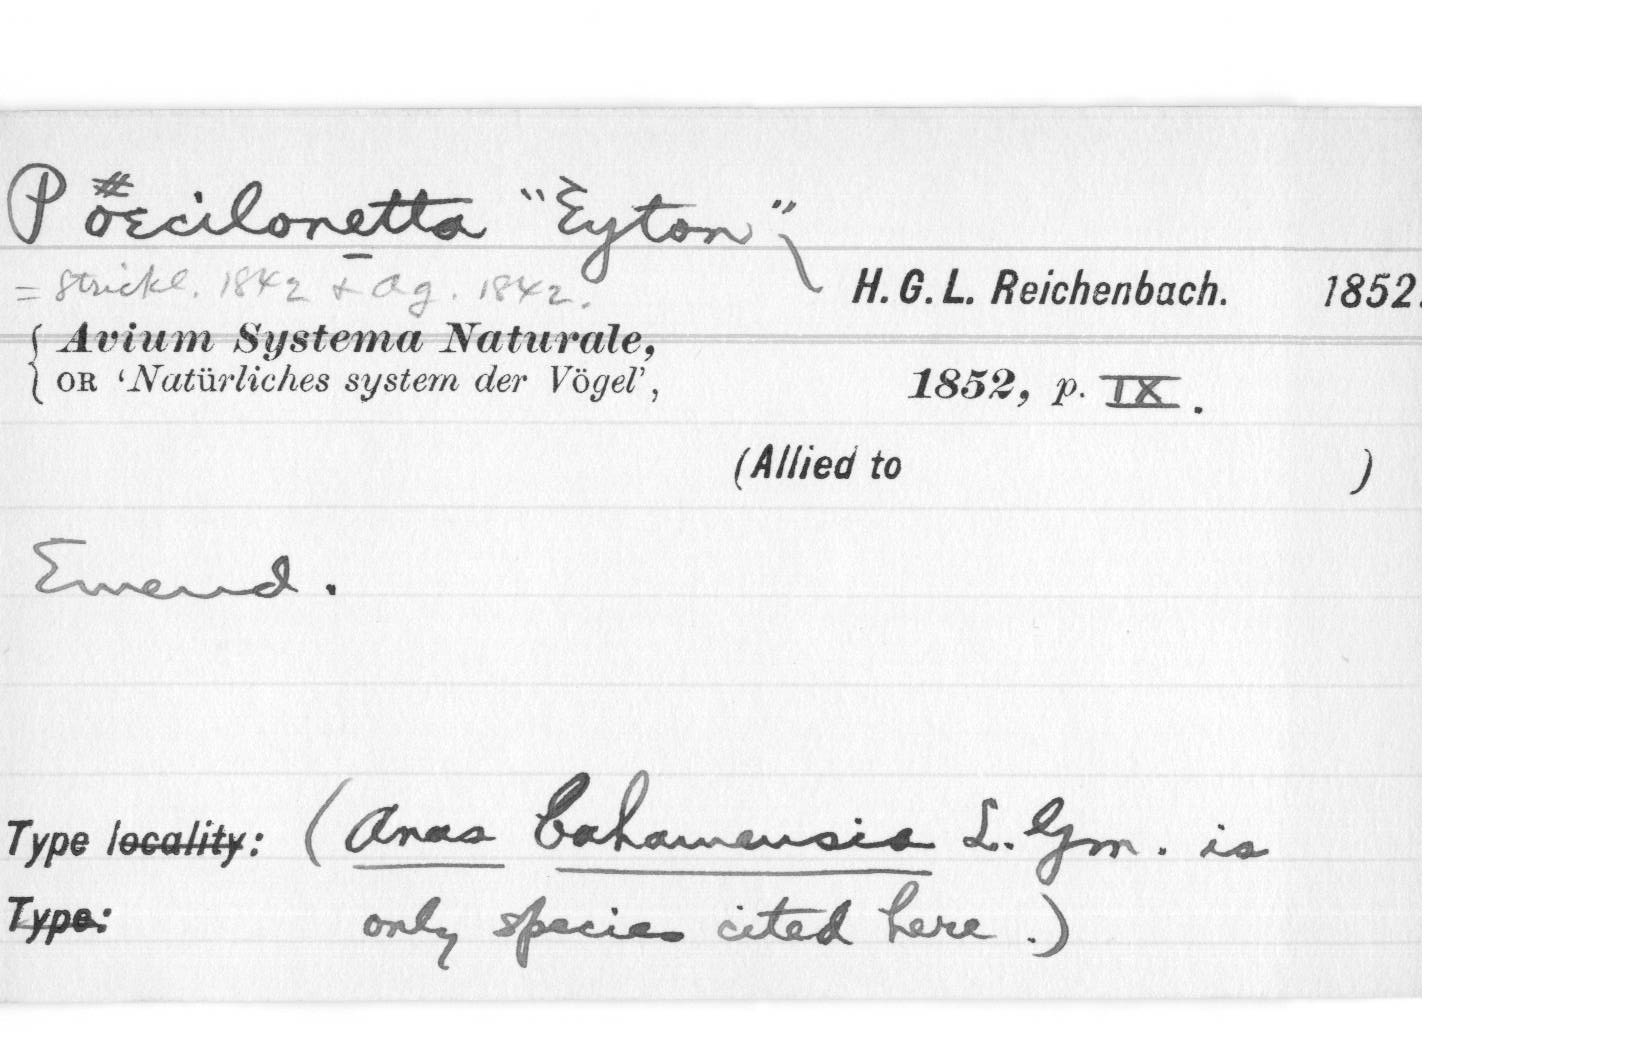 Pœcilonetta "Eyton"
= Strickl. 1842 & Ag. 1842.
H. G. L. Reichenbach. 1852.
Avium Systema Naturale,
OR 'Natürliches system der Vögel', 1852, p. IX.
(Allied to )
Emend.
Type locality: (Anas bahamensis L. Gm. is
Type: only species cited here.)